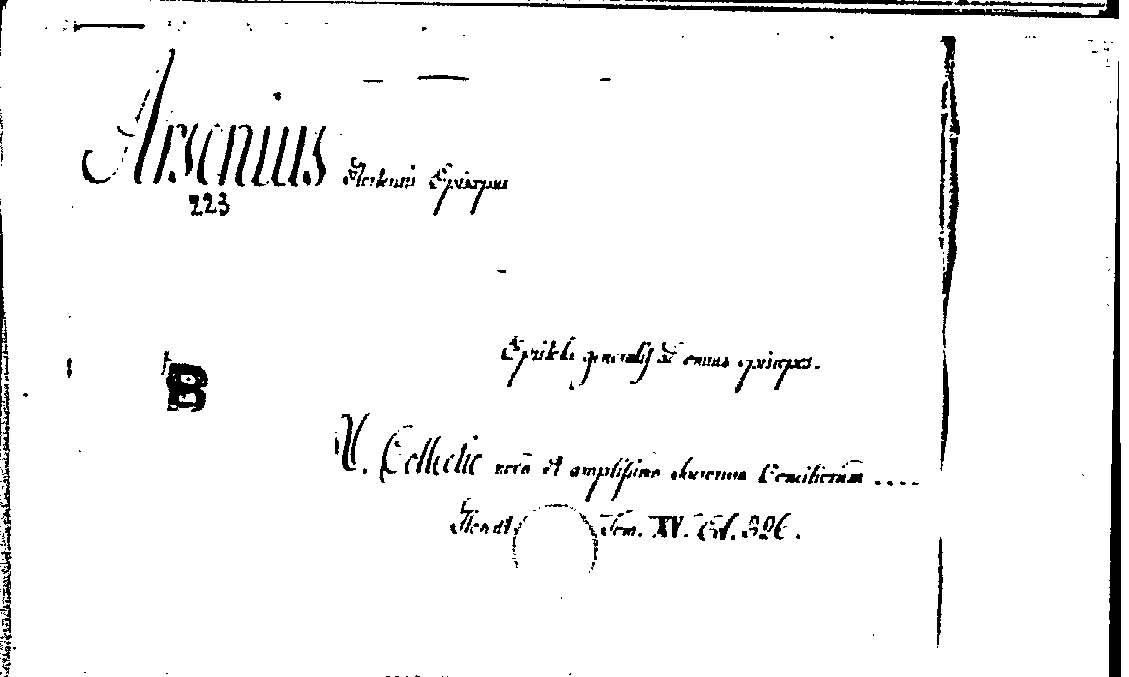 Arsenius Episcopus
223
Epistola generalis omnes episcopos.
B
V. Collectio nova et amplissima Conciliorum ....
Tom. XV. Col. 326.